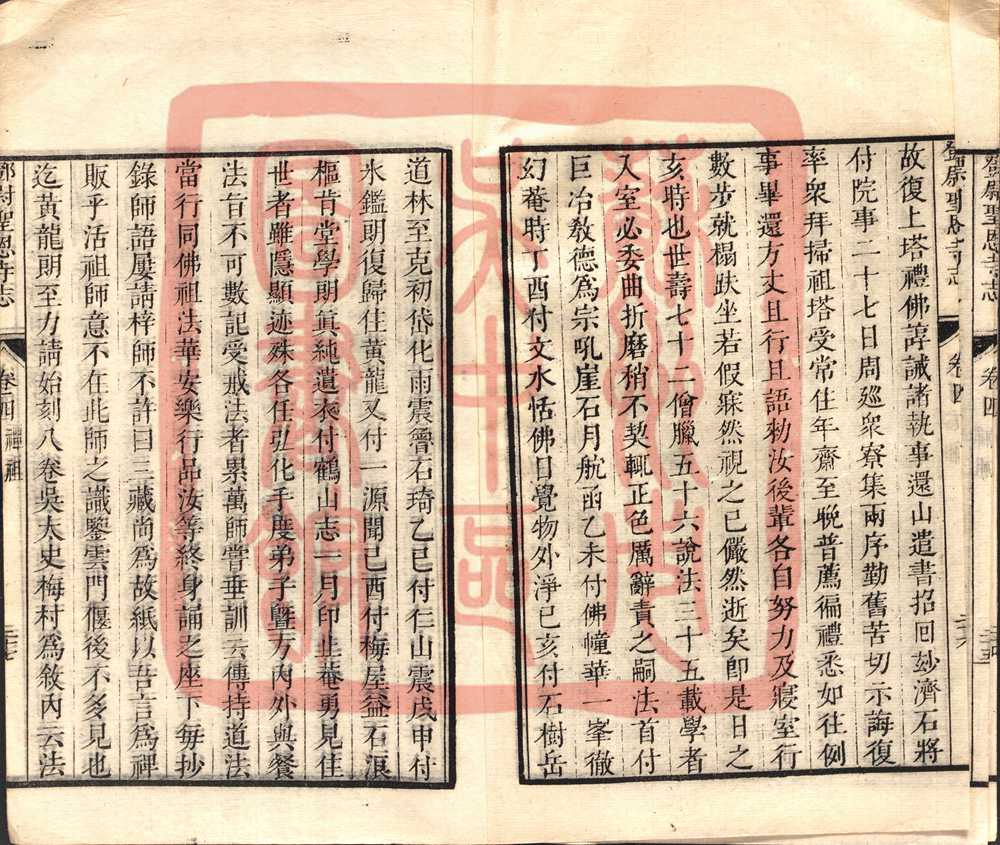 故復上塔禮佛諄誡諸執事還山遣書招回妙濟石將
付院事二十七日周廵衆寮集兩序勤舊苦切示誨復
率衆拜掃祖塔受常住年齋至晚普薦徧禮悉如往例
事畢還方丈且行且語勑汝後輩各自努力及寢室行
數步就榻趺坐若假寐然視之已儼然逝矣卽是日之
亥時也世壽七十二僧臘五十六說法三十五載學者
入室必委曲折磨稍不契輒正色厲辭責之嗣法首付
巨冶教德爲宗吼崖石月航函乙未付佛幢華一峯徹
幻菴時丁酉付文水恬佛日覺物外淨己亥付石樹岳
道林至克初岱化雨震響石琦乙巳付仁山震戊申付
氷鑑明復歸住黃龍又付一源聞己酉付梅屋益石浪
樞肯堂學朗眞純遺衣付鶴山志一月印止菴勇見住
世者雖隱顯迹殊各任弘化手度弟子曁方內外與餐
法旨不可數記受戒法者累萬師嘗垂訓云傳持道法
當行同佛祖法華安樂行品汝等終身誦之座下每抄
錄師語屢請梓師不許曰三藏尚爲故紙以吾言爲禪
販乎活祖師意不在此師之識鑒雲門偃後不多見也
迄黃龍朗至力請始刻八卷吳太史梅村爲敘內云法
鄧尉聖恩寺志
卷四 禪祖
三七